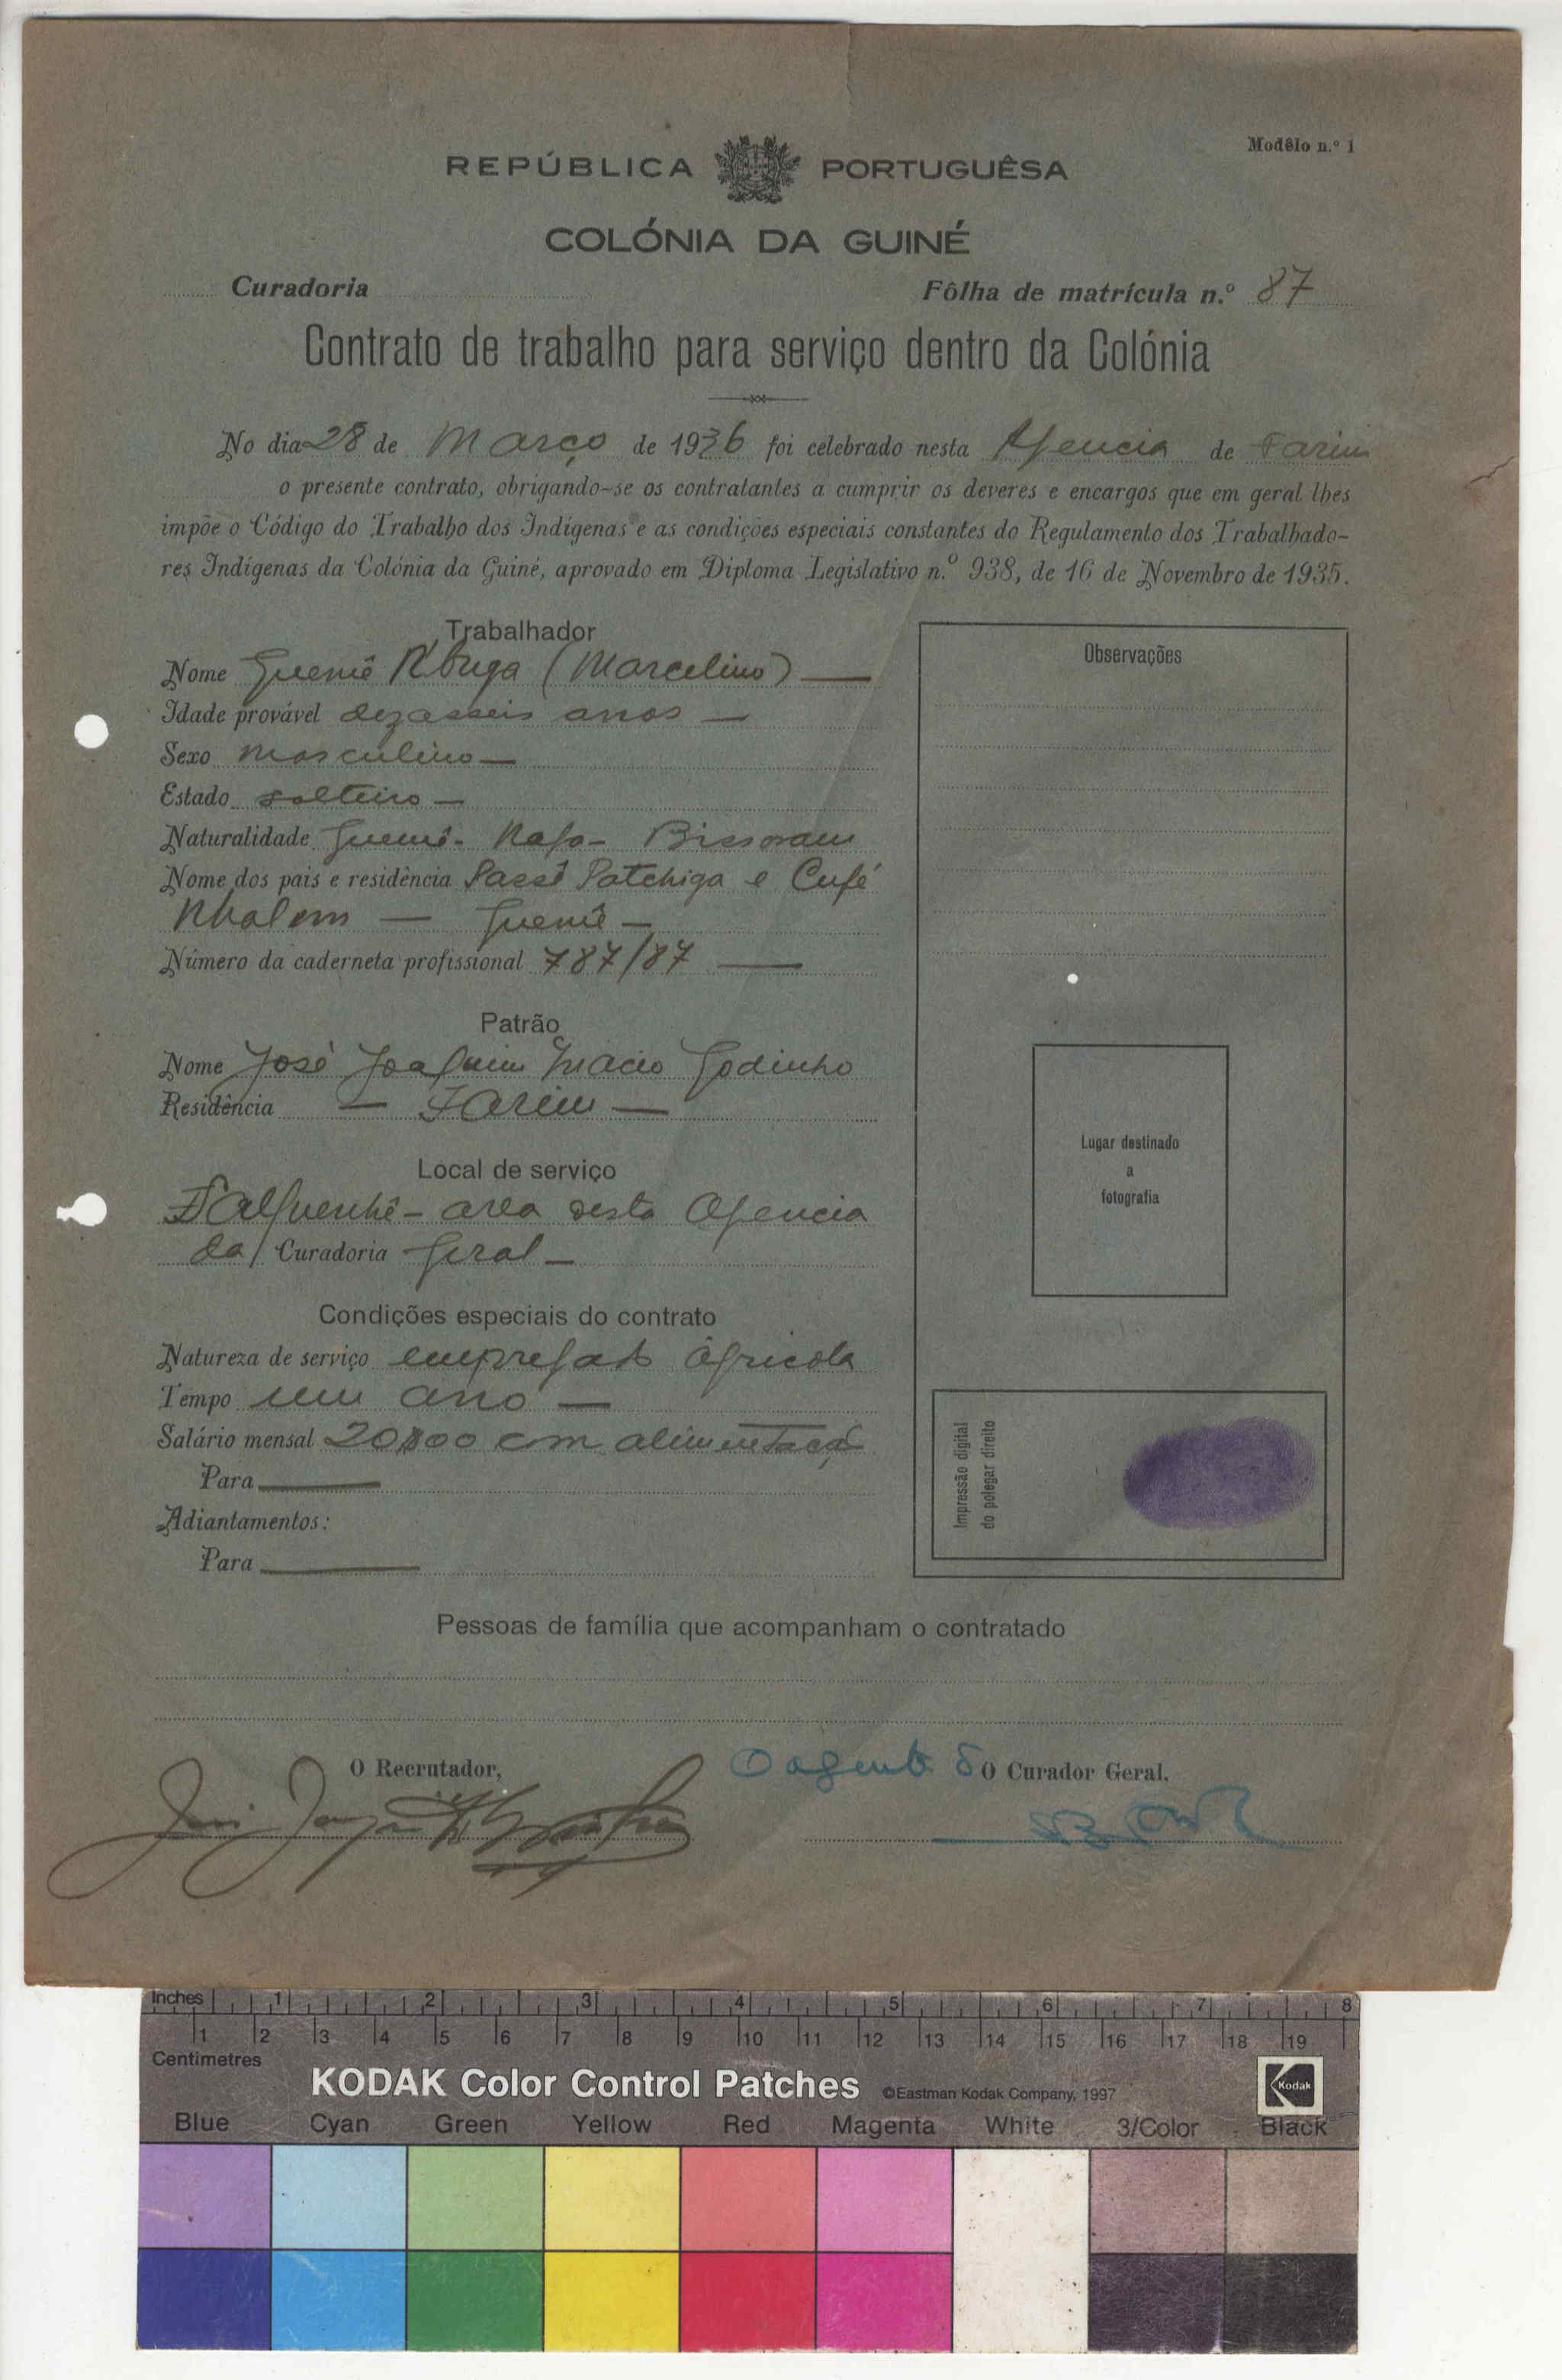 Modêlo n.º 1
REPÚBLICA PORTUGUÊSA
COLÓNIA DA GUINÉ
Curadoria
Fôlha de matrícula n.º 87
Contrato de trabalho para serviço dentro da Colónia
No dia 28 de Março de 1936 foi celebrado nesta Agencia de Farim
o presente contrato, obrigando-se os contratantes a cumprir os deveres e encargos que em geral lhes
impõe o Código do Trabalho dos Indígenas e as condições especiais constantes do Regulamento dos Trabalhado-
res Indígenas da Colónia da Guiné, aprovado em Diploma Legislativo n.º 938, de 16 de Novembro de 1935.
Trabalhador
Nome (Marcelino)
Idade provável dezasseis anos
Sexo masculino
Estado solteiro
Naturalidade Bissoram
Nome dos pais e residência Patchiga e Cufé
Número da caderneta profissional 787/87
Patrão
Nome José Joaquim Inacio Godinho
Residência Farim
Local de serviço
area desta Agencia
da Curadoria Geral
Condições especiais do contrato
Natureza de serviço empregado Agricola
Tempo um ano
Salário mensal 20$00 com alimentação
Para
Adiantamentos:
Para
Observações
Lugar destinado
a
fotografia
Impressão digital
do polegar direito
Pessoas de família que acompanham o contratado
O Recrutador,
O agente do O Curador Geral,
Inches 1 2 3 4 5 6 7 8
1 2 3 4 5 6 7 8 9 10 11 12 13 14 15 16 17 18 19
Centimetres
KODAK Color Control Patches ©Eastman Kodak Company, 1997 Kodak
Blue Cyan Green Yellow Red Magenta White 3/Color Black